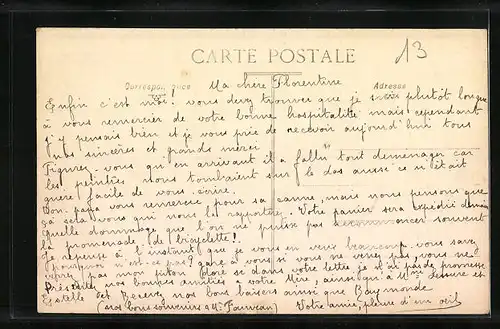 13
CARTE POSTALE
Correspondance Ma chère Florentine Adresse
Enfin c'est moi! vous devez trouver que je suis plutôt longue
à vous remercier de votre bonne hospitalité mais cependant
j'y pensais bien et je vous prie de recevoir aujourd'hui tous
nos sincères et grands merci
Figurez-vous qu'en arrivant il a fallu tout demenager car
les peintres nous tombaient sur le dos aussi ce n'était
guère facile de vous écrire.
Bon papa vous remercie pour sa canne, mais nous pensons que
ça sera vous qui nous la rapportera. Votre panier sera expédié demain
Quelle dommage que l'on ne puisse pas recommencer souvent
la promenade de bicyclette!
J'y repense à l'instant que je vous en veux beaucoup vous savez
pourquoi n'est-ce pas? gare à vous si vous ne venez pas, vous ne
pas mon piton dore si dans votre lettre je n'ai pas de promesse
Présentez nos bonnes amitiés à votre Mère, ainsi qu'à Mme et
Estelle et nos bons baisers ainsi que Raymonde
(nos bons souvenirs à Mr Fauveau) Votre amie, pleure d'un œil